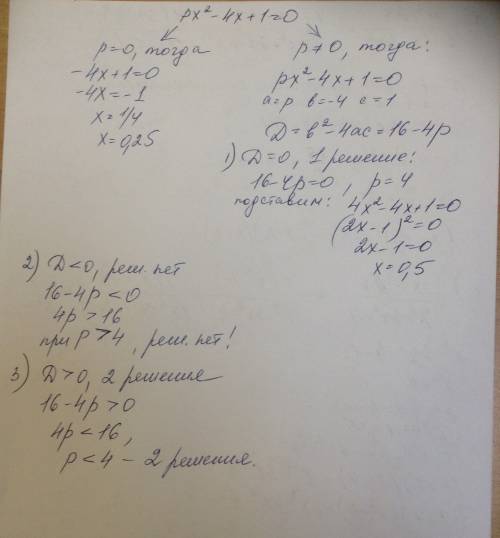 px²-4x+1=0
p=0, тогда
-4x+1=0
-4x=-1
x=1/4
x=0,25
p≠0, тогда:
px²-4x+1=0
a=p b=-4 c=1
D=b²-4ac=16-4p
1) D=0, 1 решение:
16-4p=0, p=4
подставим: 4x²-4x+1=0
(2x-1)²=0
2x-1=0
x=0,5
2) D<0, реш. нет
16-4p<0
4p>16
при p>4, реш. нет!
3) D>0, 2 решения
16-4p>0
4p<16,
p<4 - 2 решения.